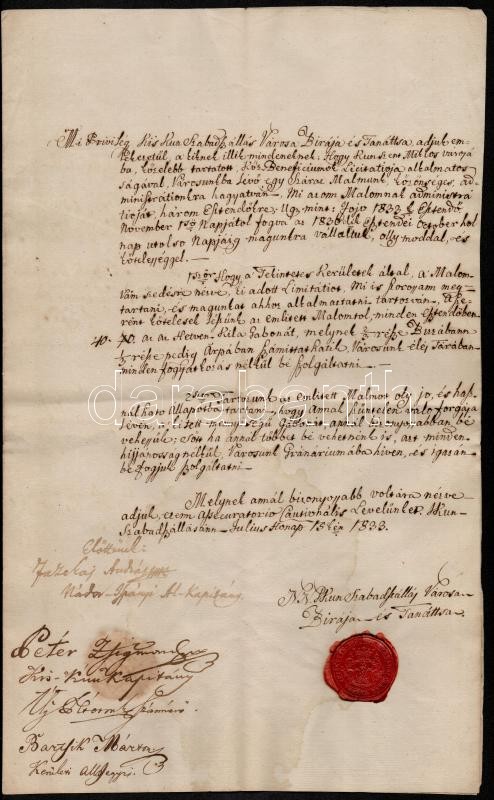 Mi Privilég. Kis Kun Szabadszállás Városa Birája és Tanáttsa, adjuk em-
lékezetül, a kiknek illik mindeneknek: Hogy Kun Szent Miklós várossá-
ba, közelebb tartatott, Köz Beneficiumok Licitatioja alkalmatos-
ságával, Városunkba lévő egy Száraz Malmunk, közönséges, ad-
ministratiónkra hagyatván. Mi azon Malomnak administrá-
tioját, három Esztendőkre; Úgymint: Jövő 1833ik Esztendő
November 1ső Napjától fogva az 1836dik Esztendei October hol-
nap utolsó Napjáig magunkra vállaltuk, olly móddal, és
kötelességgel.
1ször Hogy a Tekintetes Kerületek által, a Malom-
Vám szedésre nézve, ki adott Limitátiót, Mi is
tartani, és magunkat ahhoz alkalmaztatni tartozván, a
ként kötelesek lészünk az említett Malomtól, minden Esztendőben
70. az az Hetven Kila Gabonát, melynek 2/3 része Buzábann
1/3 része pedig Árpában számittathatik Városunk
minden fogyatkozás nélkül bé szolgáltatni.
2szor Tartozunk az említett Malmot oly jó, és hasz-
nálható állapotba tartani, hogy annak szüntelen való forgása
lévén, a ki tett mennyiségű Gabonát annál bizonyosabban bé
vehessük; sőt ha annál többet bé vehetnénk is, azt minden
híjjánosság nélkül, Városunk Gránáriumába híven, és igazán
bé fogjuk szolgáltatni.
Melynek annál bizonyosabb voltára nézve
adjuk, ezen Assecuratorio Cautionális Levelünket. Kun-
Szabadszállásánn Julius Hónap 15kén 1833.
Előttünk:
Fazekas András
Nádor-Ispányi Al-Kapitány
N. K. Kun Szabadszállás Városa
Birája és Tanáttsa
Péter Zsigmond
Kis-Kun Kapitány
Bartsik Márton
Kerületi
darabanth